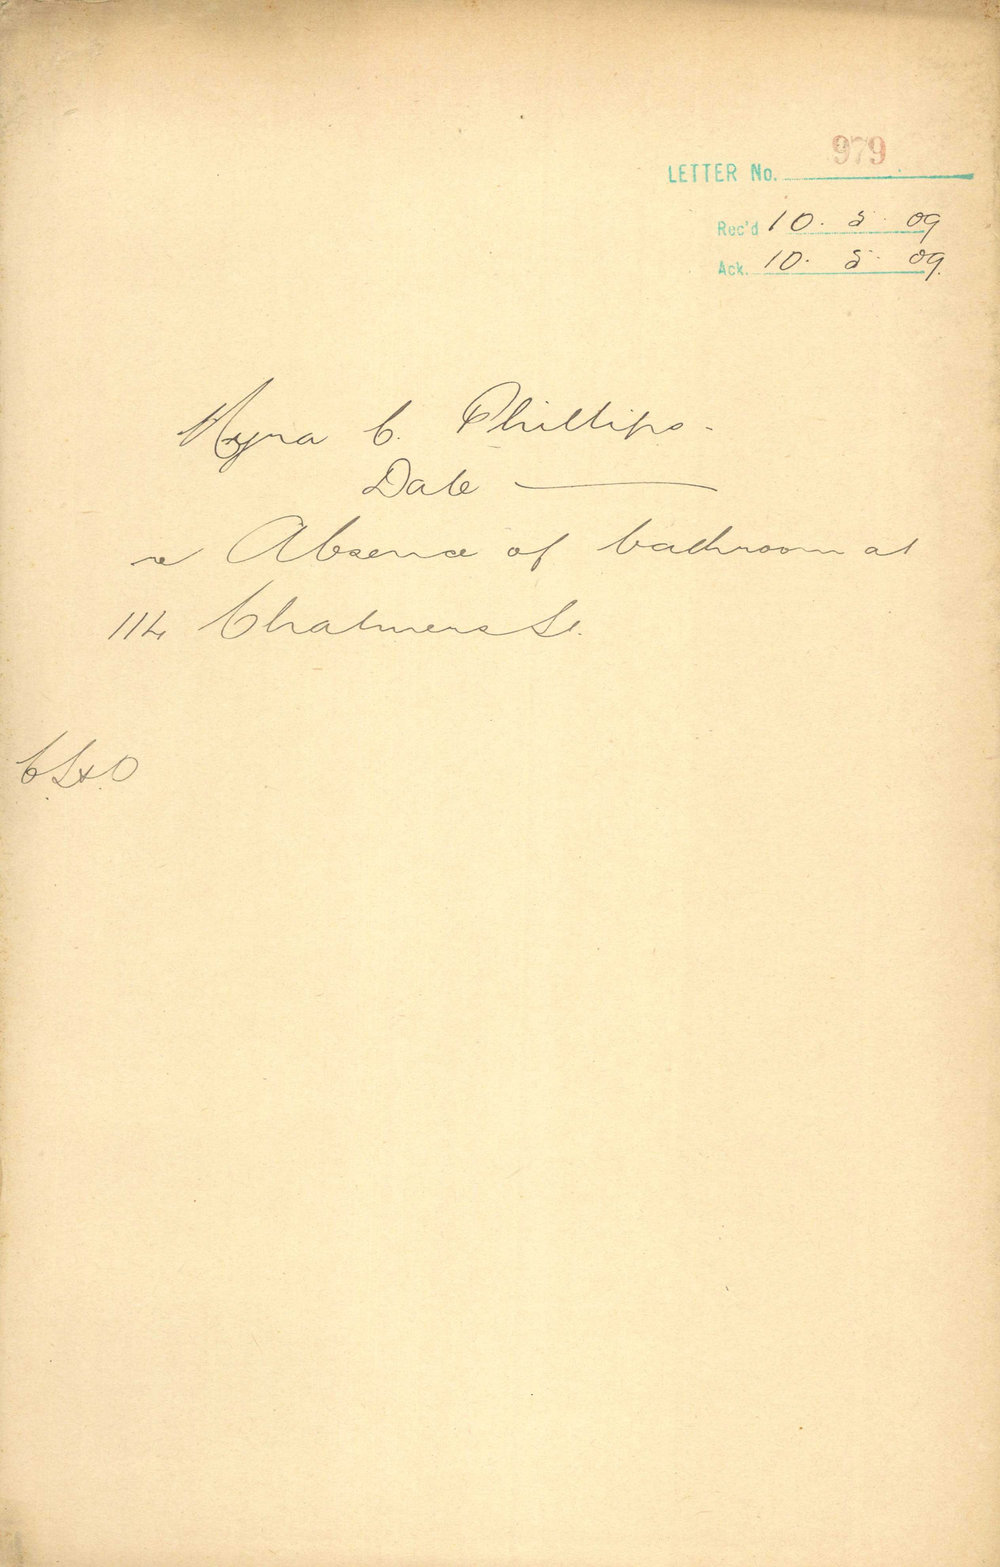 LETTER No. 979
Rec'd 10. 5. 09
Ack. 10. 5. 09.
Myra C. Phillips.
Date —
re Absence of bathroom at
114 Chalmers St.